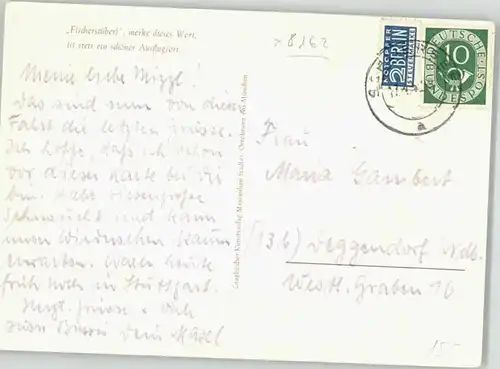 „Fischerstüberl", merke dieses Wort,
ist stets ein schöner Ausflugsort.
x 8162
NOTOPFER
2 BERLIN
STEUERMARKE
DEUTSCHE
10
BUNDESPOST
a
Meine liebe Mizzl!
Das sind nun von dieser
Fahrt die letzten Grüsse.
Ich hoffe, dass ich schon
vor dieser Karte bei Dir
bin. Habe riesengroße
Sehnsucht und kann
unser Wiedersehen kaum
erwarten. Waren heute
früh noch in Stuttgart.
Herzl. Grüsse + dich
Bussi Dein
Graphischer Kunstverlag Maximilian Stadler, Oberbrunn bei München
Frau
Maria Gambert
(13b) Deggendorf Ndb.
Westl. Graben 10
15.-